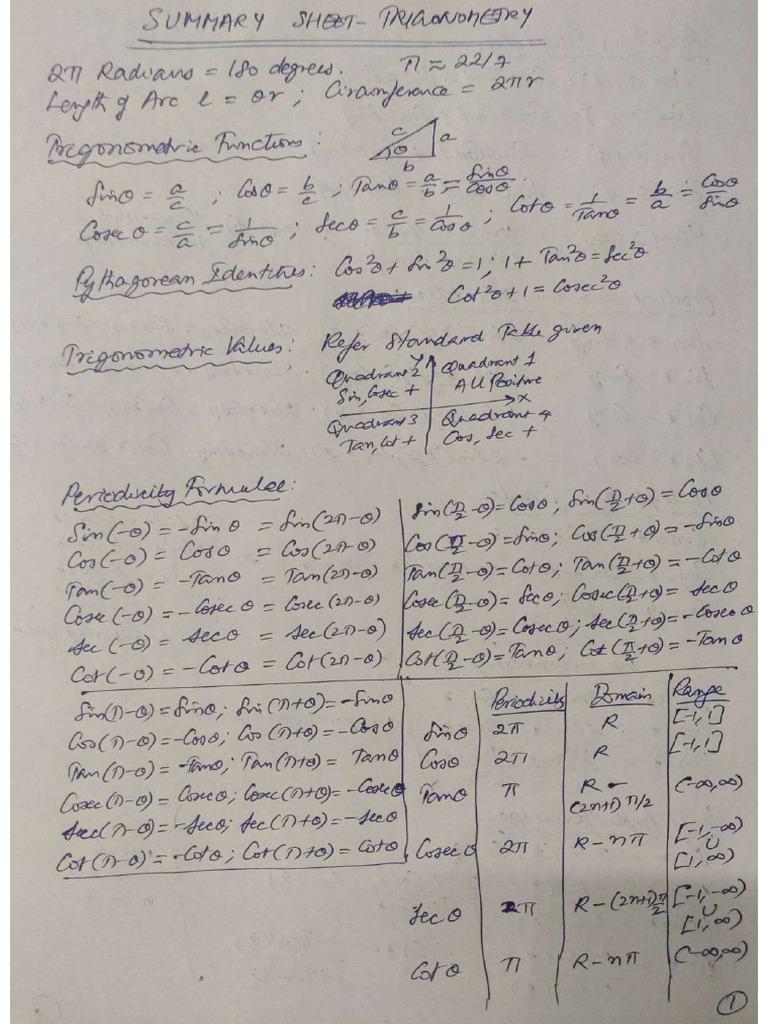 SUMMARY SHEET - TRIGONOMETRY
2π Radians = 180 degrees. π ≈ 22/7
Length of Arc l = θr ; Circumference = 2πr
Trigonometric Functions :
c a θ b
Sinθ = a/c ; Cosθ = b/c ; Tanθ = a/b = Sinθ/Cosθ
Cosec θ = c/a = 1/Sinθ ; Sec θ = c/b = 1/Cosθ ; Cot θ = 1/Tanθ = b/a = Cosθ/Sinθ
Pythagorean Identities : Cos²θ + Sin²θ = 1 ; 1 + Tan²θ = Sec²θ
Cot²θ + 1 = Cosec²θ
Trigonometric Values : Refer Standard Table given
Quadrant 2
Sin, Cosec +
Y
Quadrant 1
All Positive
X
Quadrant 3
Tan, Cot +
Quadrant 4
Cos, Sec +
Periodicity Formulae :
Sin(-θ) = -Sin θ = Sin(2π-θ)
Cos(-θ) = Cosθ = Cos(2π-θ)
Tan(-θ) = -Tanθ = Tan(2π-θ)
Cosec(-θ) = -Cosec θ = Cosec(2π-θ)
Sec(-θ) = Secθ = Sec(2π-θ)
Cot(-θ) = -Cotθ = Cot(2π-θ)
Sin(π/2-θ) = Cosθ ; Sin(π/2+θ) = Cosθ
Cos(π/2-θ) = Sinθ ; Cos(π/2+θ) = -Sinθ
Tan(π/2-θ) = Cotθ ; Tan(π/2+θ) = -Cotθ
Cosec(π/2-θ) = Secθ ; Cosec(π/2+θ) = Secθ
Sec(π/2-θ) = Cosecθ ; Sec(π/2+θ) = -Cosecθ
Cot(π/2-θ) = Tanθ ; Cot(π/2+θ) = -Tanθ
Sin(π-θ) = Sinθ ; Sin(π+θ) = -Sinθ
Cos(π-θ) = -Cosθ ; Cos(π+θ) = -Cosθ
Tan(π-θ) = -Tanθ ; Tan(π+θ) = Tanθ
Cosec(π-θ) = Cosecθ ; Cosec(π+θ) = -Cosecθ
Sec(π-θ) = -Secθ ; Sec(π+θ) = -Secθ
Cot(π-θ) = -Cotθ ; Cot(π+θ) = Cotθ
Periodicity Domain Range
Sinθ 2π R [-1,1]
Cosθ 2π R [-1,1]
Tanθ π R - (2n+1)π/2 (-∞,∞)
Cosec θ 2π R - nπ [-1,-∞) ∪ [1,∞)
Sec θ 2π R - (2n+1)π/2 [-1,-∞) ∪ [1,∞)
Cot θ π R - nπ (-∞,∞)
1